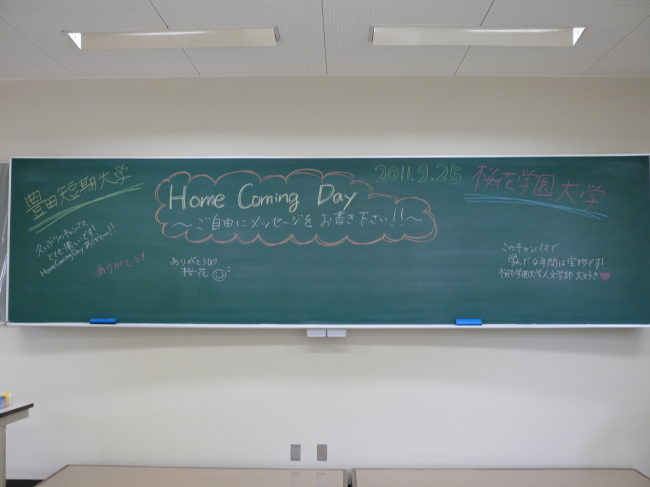 豊田短期大学
Home Coming Day
～ご自由にメッセージをお書き下さい!!～
2011.9.25
桜花学園大学
久しぶりのキャンパス
とても懐しいです!
Home Coming Day ありがとう!!
ありがとう
ありがとう♡
桜花☺
このキャンパスで
学んだ4年間は宝物です!
桜花学園大学人文学部 大好き♥